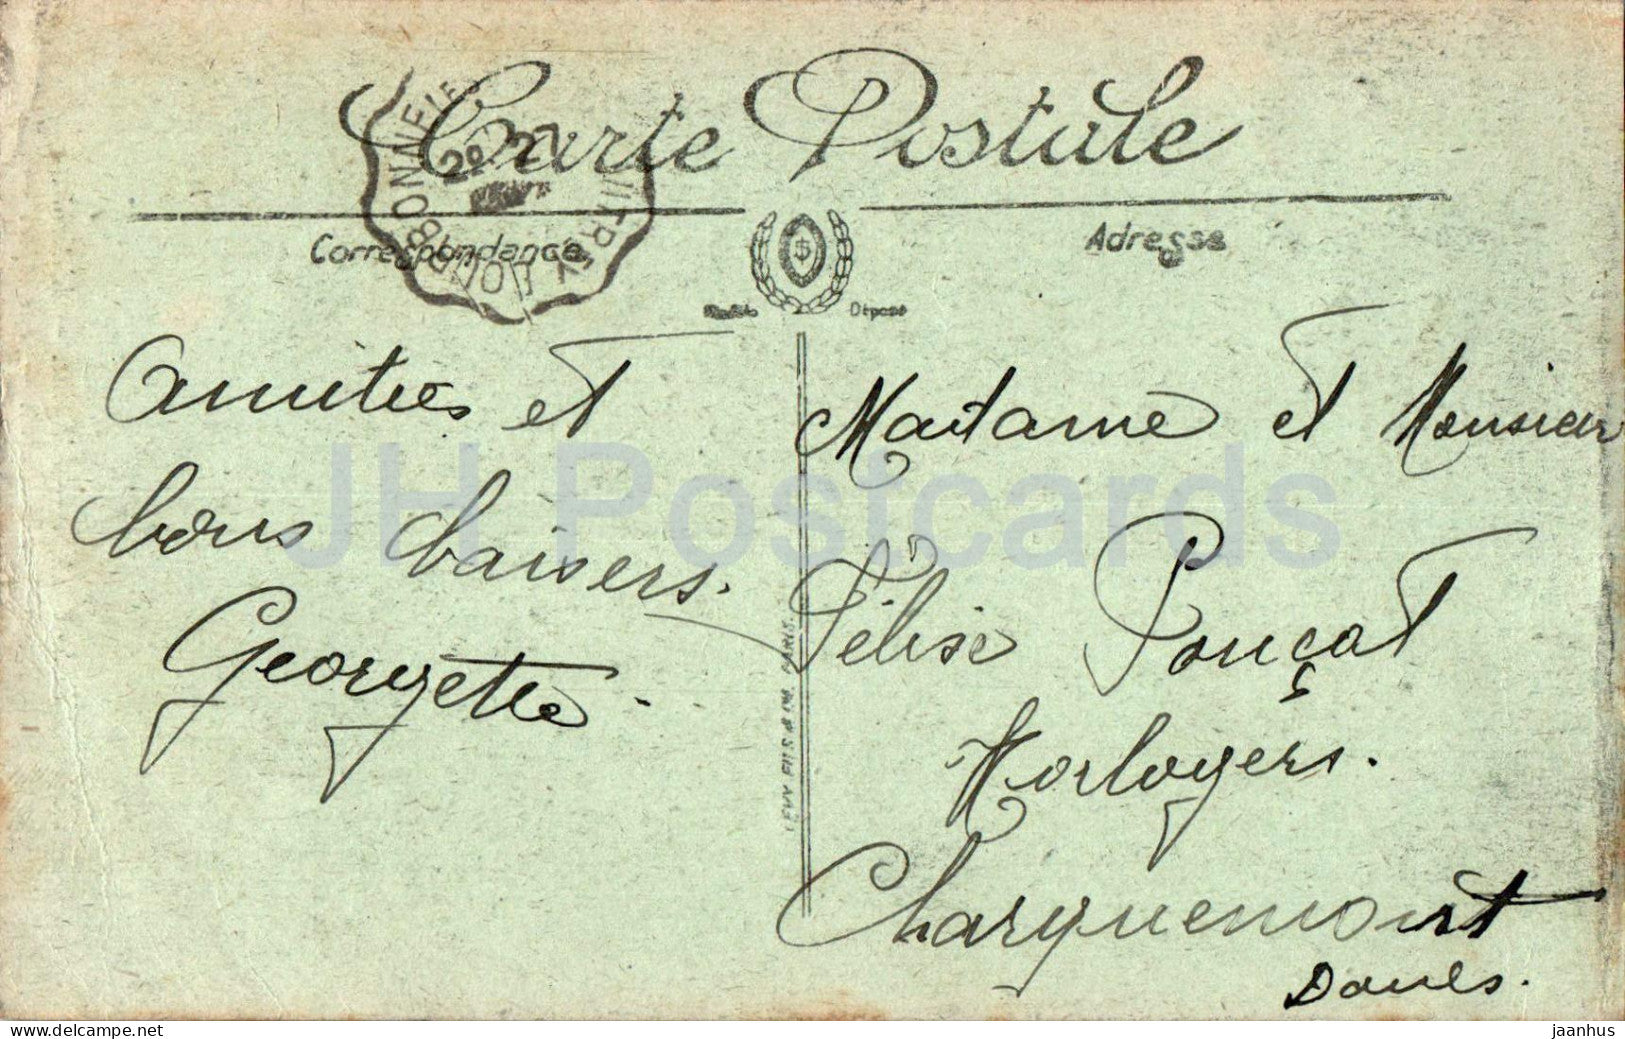 Carte Postale
Correspondance
Adresse
Modèle Déposé
Amitiés et
bons baisers.
Georgette.
LEVY FILS & Cie. PARIS.
Madame et Monsieur
Félise Pouçot
Horlogers.
Charquemont
Doubs.
JH Postcards
www.delcampe.net
jaanhus